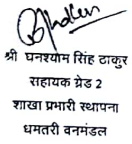 श्री घनश्याम सिंह ठाकुर
सहायक ग्रेड 2
शाखा प्रभारी स्थापना
धमतरी वनमंडल